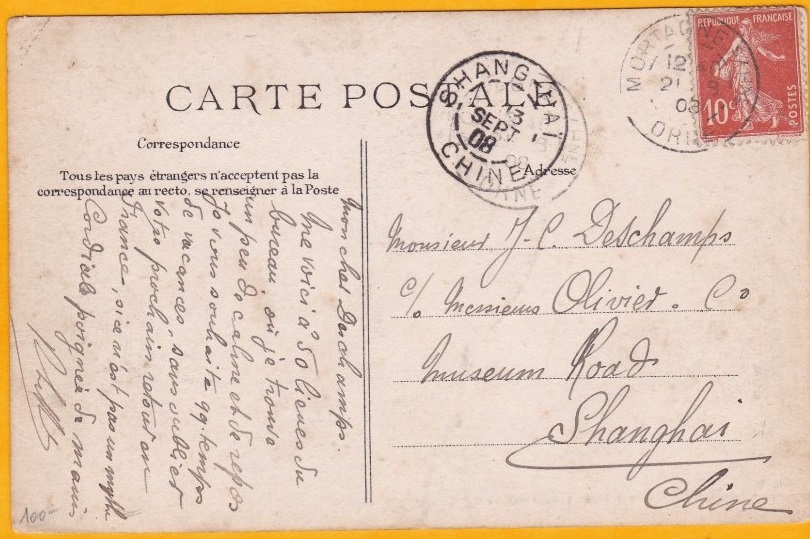 CARTE POSTALE
Correspondance
Tous les pays étrangers n'acceptent pas la
correspondance au recto, se renseigner à la Poste
Mon cher Deschamps.
Me voici à 50 lieues du
bureau, où je trouve
un peu de calme et de repos
Je vous souhaite qq. temps
de vacances, sans oublier
votre prochain retour en
France, si ce n'est pas un mythe
Cordiale poignée de mains
Adresse
Monsieur J-C. Deschamps
c/o Messieurs Olivier - Co
Museum Road
Shanghai
Chine
SHANG-HAI
13
SEPT
08
CHINE
MORTAGNE
12
21
08
ORNE
REPUBLIQUE FRANÇAISE
10c
POSTES
100-